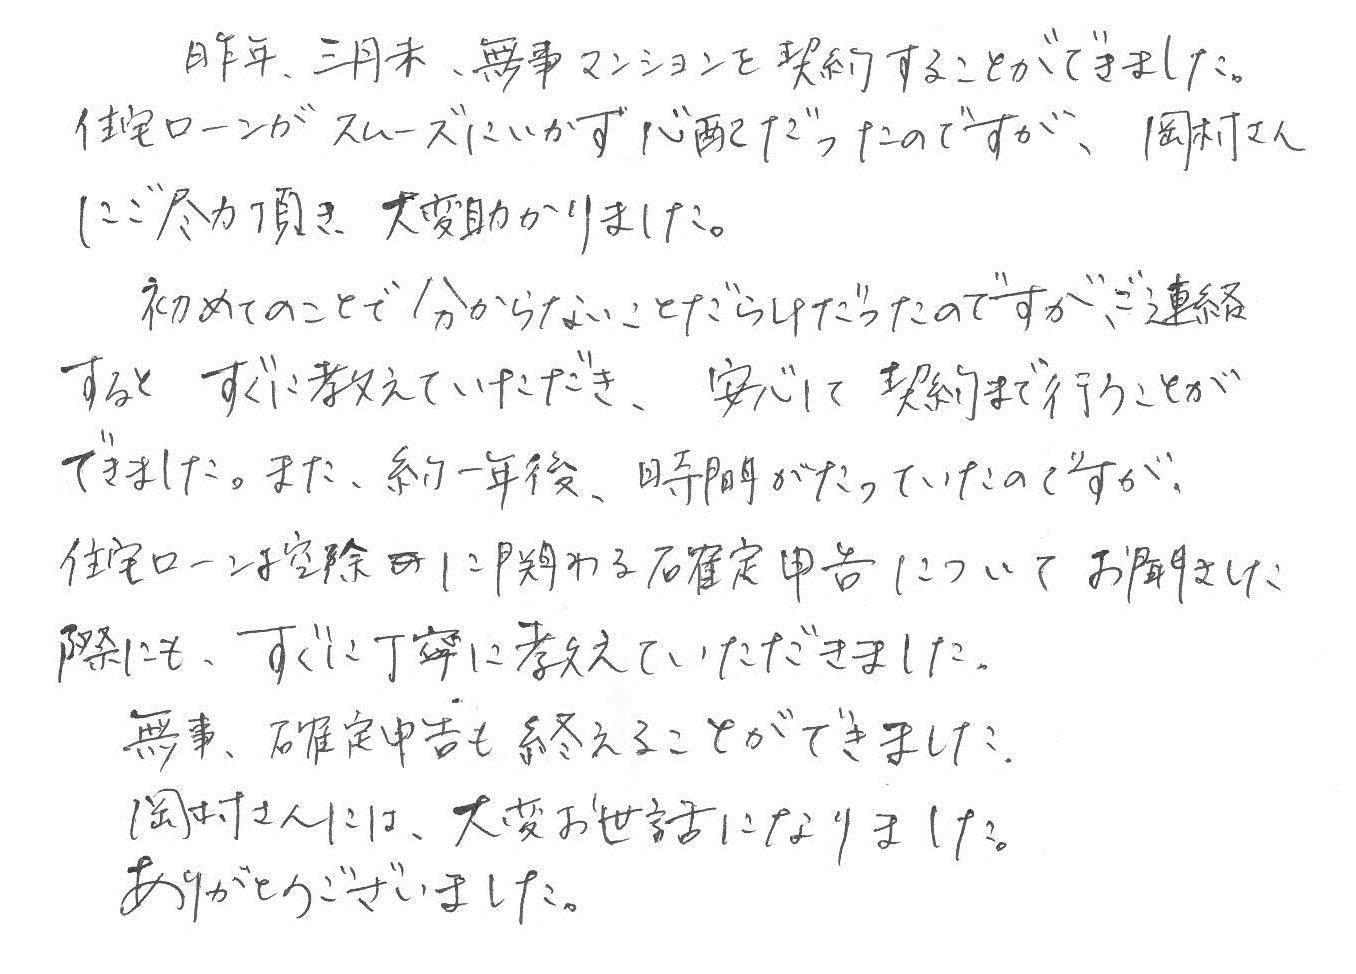 昨年、三月末、無事マンションを契約することができました。
住宅ローンがスムーズにいかず心配だったのですが、岡村さん
にご尽力頂き、大変助かりました。
初めてのことで分からないことだらけだったのですが、ご連絡
すると すぐに教えていただき、安心して契約まで行うことが
できました。また、約一年後、時間がたっていたのですが、
住宅ローン控除に関わる確定申告についてお聞きした
際にも、すぐに丁寧に教えていただきました。
無事、確定申告も終えることができました。
岡村さんには、大変お世話になりました。
ありがとうございました。